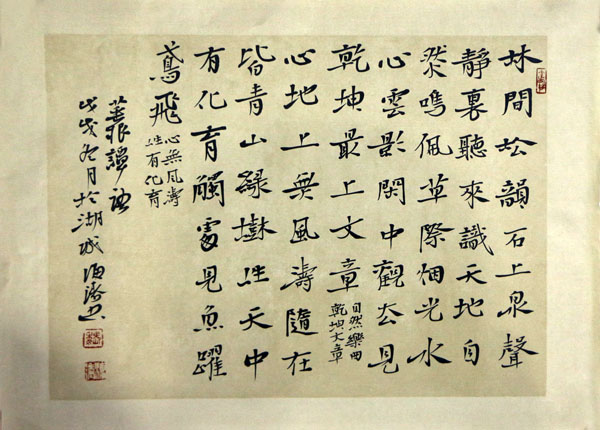 林間松韻石上泉聲
靜裏聽來識天地自
然鳴佩草際烟光水
心雲影閑中觀去見
乾坤最上文章
自然樂曲
乾坤文章
心地上無風濤隨在
皆青山綠樹性天中
有化育觸處見魚躍
鳶飛
心無風濤
性有化育
菜根譚語
戊戌冬月於湖城